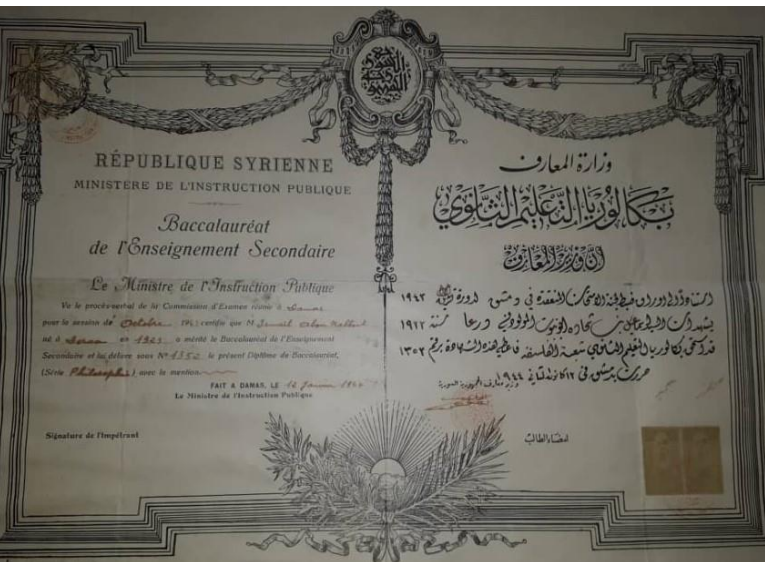 الجمهورية السورية
RÉPUBLIQUE SYRIENNE
MINISTERE DE L'INSTRUCTION PUBLIQUE
Baccalauréat
de l'Enseignement Secondaire
Le Ministre de l'Instruction Publique
Vu le procès-verbal de la Commission d'Examen réunie à Damas
pour la session de Octobre certifie que M Ismail Abou
né à Deraa en 1923 a mérité le Baccalauréat de l'Enseignement
Secondaire et lui délivre sous Nº 1352 le présent Diplôme de Baccalauréat,
(Série Philosophie) avec la mention
FAIT A DAMAS, LE 12 Janvier 1944
Le Ministre de l'Instruction Publique
Signature de l'Impétrant
وزارة المعارف
بكالوريا التعليم الثانوي
ان وزير المعارف
استناداً الى اوراق ضبط لجنة الامتحانات المنعقدة في دمشق لدورة ١٩٤٣
يشهد ان السيد اسماعيل بن شحاده المولود في درعا سنة ١٩٢٢
قد استحق بكالوريا التعليم الثانوي شعبة الفلسفة فاعطي هذه الشهادة برقم ١٣٥٢
حررت بدمشق في ١٢ كانون الثاني ١٩٤٤
وزير معارف الجمهورية السورية
امضاء الطالب